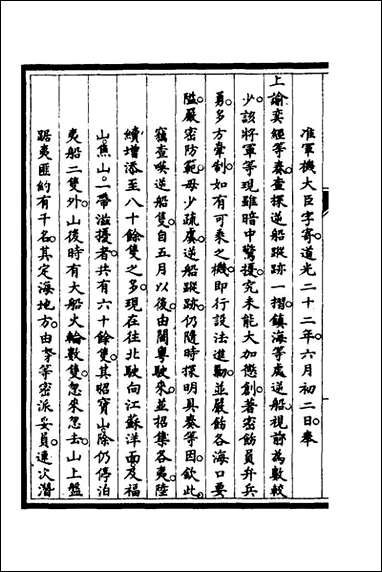 准軍機大臣字寄道光二十二年六月初二日奉
上諭奕經等奏查探逆船蹤跡一摺鎮海等處逆船視前為數較
少該將軍等現雖暗中驚擾究未能大加懲創著密飭員弁兵
勇多方牽制如有可乘之機即行設法進勦並嚴飭各海口要
隘嚴密防範毋少疏虞逆船蹤跡仍隨時探明具奏等因欽此
竊查暎逆船隻自五月以後由閩粵駛來並招集各夷陸
續增添至八十餘隻之多現在往北駛向江蘇洋面及福
山焦山一帶滋擾者共有六十餘隻其昭寶山除仍停泊
夷船二隻外山後時有大船火輪數隻忽來忽去山上盤
踞夷匪約有千名其定海地方由奴才等密派妥員連次潛